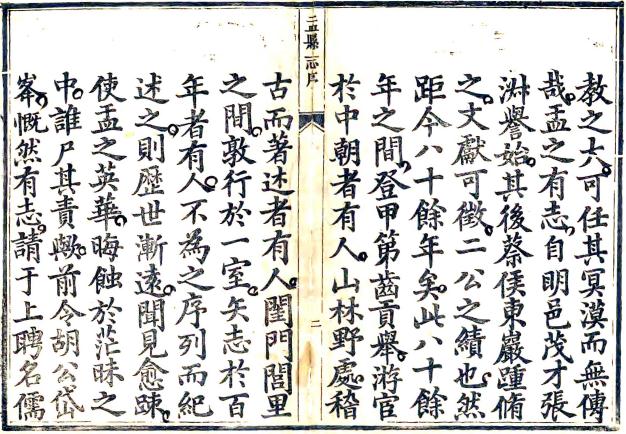 教之大可任其冥漠而無傳
哉盂之有志自明邑茂才張
淑譽始其後蔡侯東巖踵脩
之文獻可徵二公之績也然
距今八十餘年矣此八十餘
年之間登甲第齒貢舉游宦
於中朝者有人山林野處稽
盂縣志序
二
古而著述者有人閨門閭里
之間敦行於一室矢志於百
年者有人不為之序列而紀
述之則歷世漸遠聞見愈踈
使盂之英華晦蝕於茫昧之
中誰尸其責歟前令胡公岱
峯慨然有志請于上聘名儒